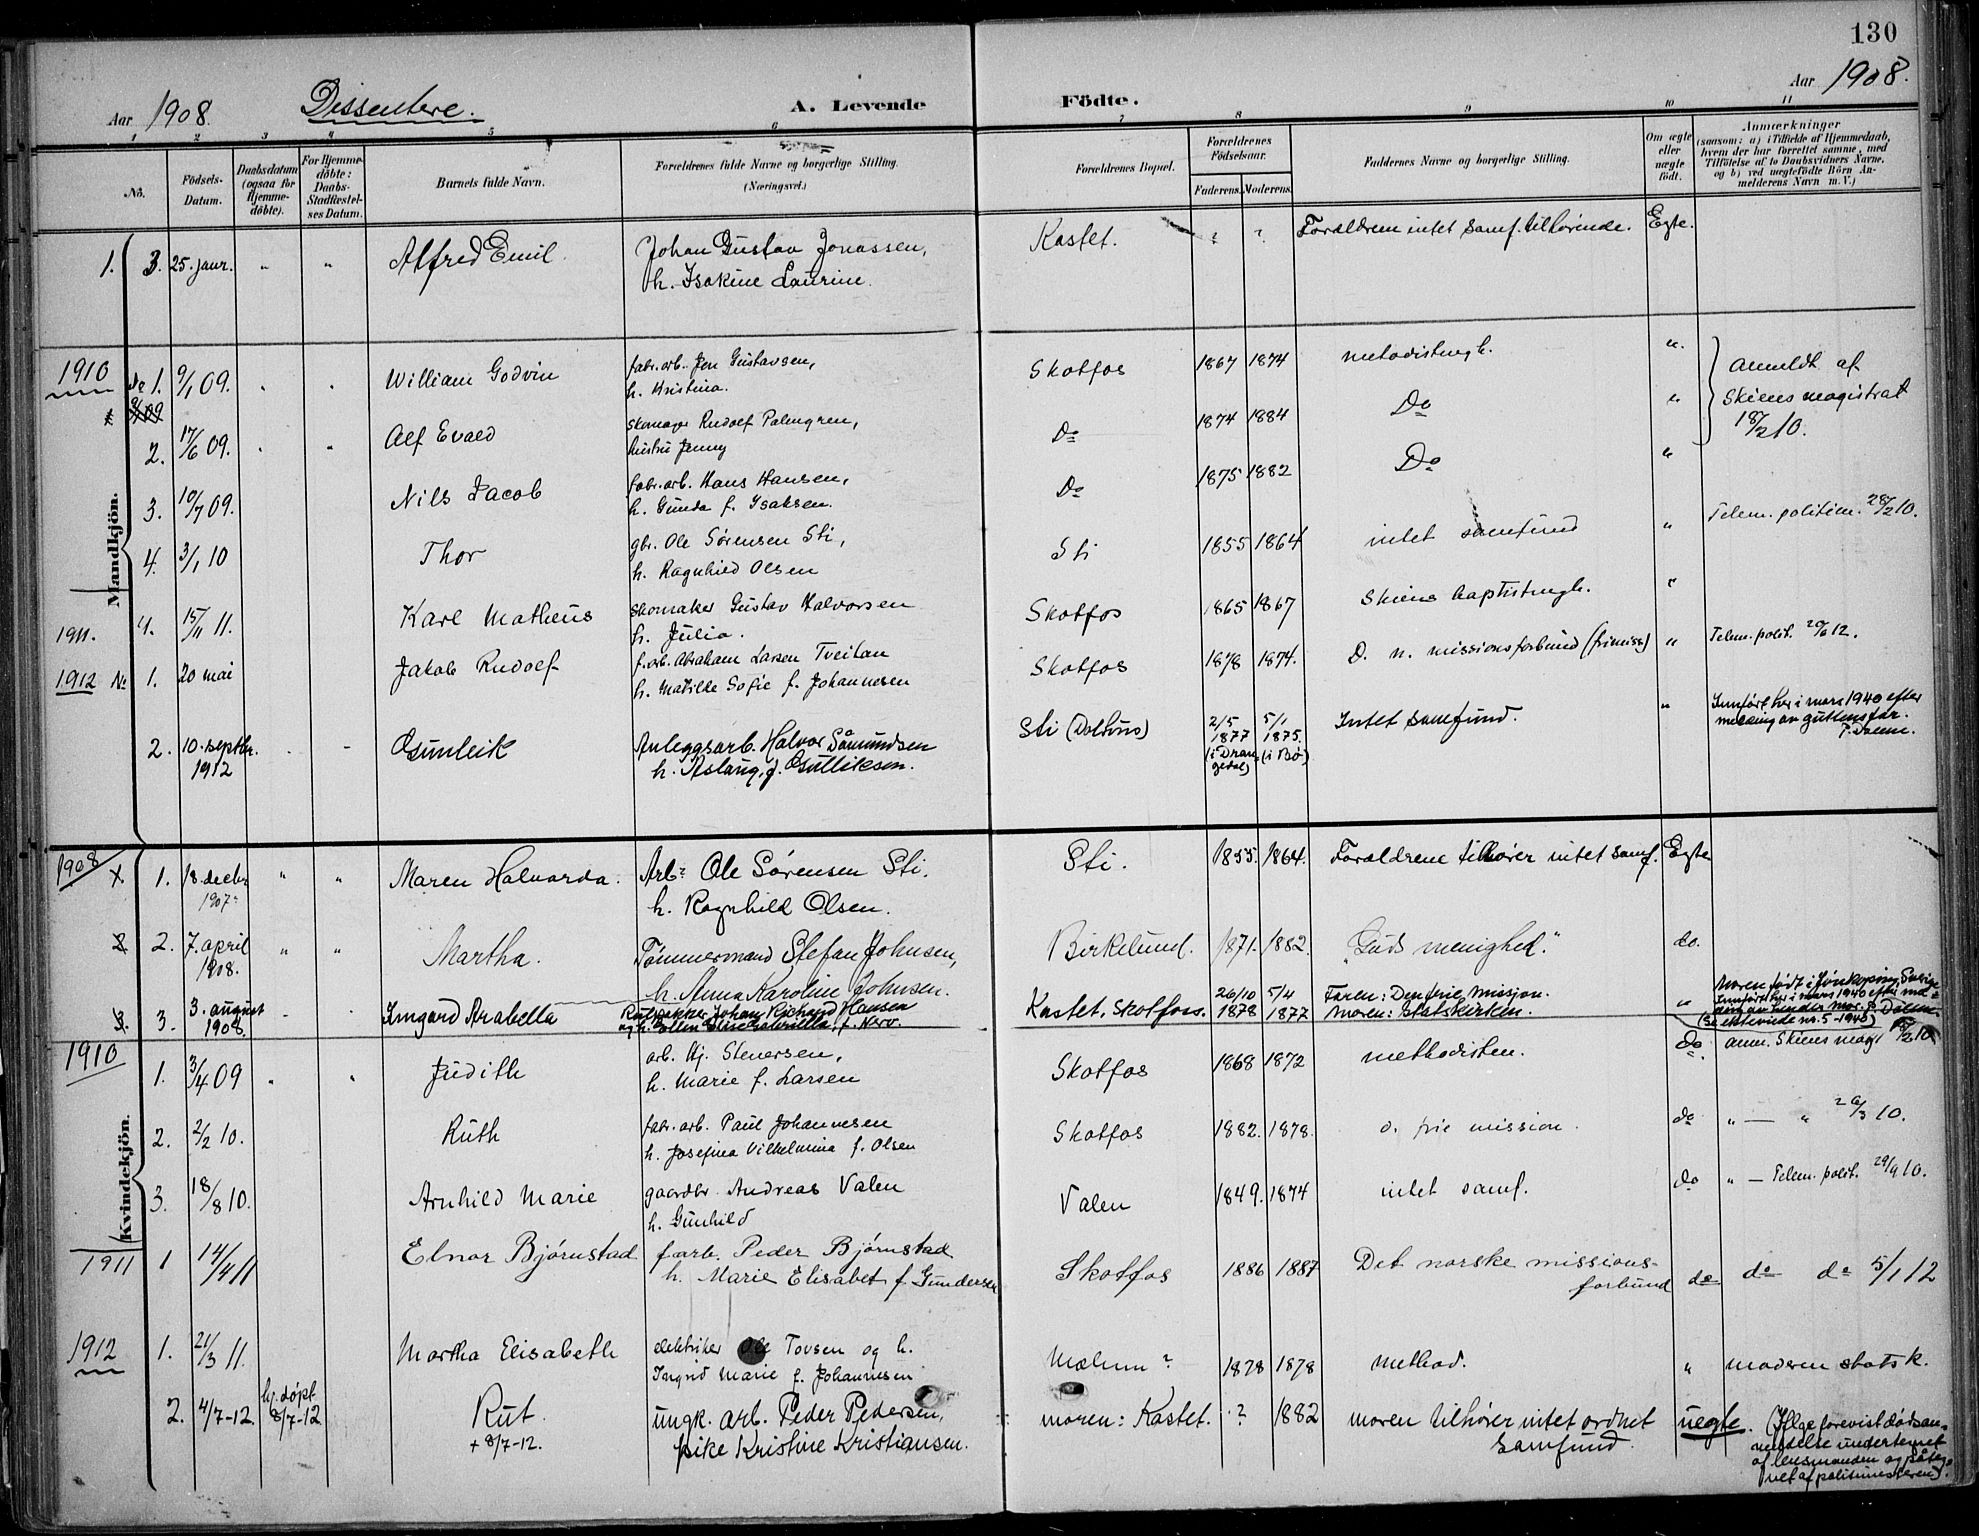 130
Aar 1908. Dissentere. A. Levende Födte. Aar 1908.
1 2 3 4 5 6 7 8 9 10 11
No. | Födsels-Datum. | Daabsdatum (ogsaa for Hjemmedöbte). | For Hjemmedöbte: Daabs-Stadfæstelses Datum. | Barnets fulde Navn. | Forældrenes fulde Navne og borgerlige Stilling. (Næringsvei.) | Forældrenes Bopæl. | Forældrenes Födselsaar. Faderens. Moderens. | Faddernes Navne og borgerlige Stilling. | Om ægte eller uægte födt. | Anmærkninger (saasom: a) i Tilfælde af Hjemmedaab, hvem der har forrettet samme, med Tilföielse af to Daabsvidners Navne, og b) ved uægtefödte Börn Anmelderens Navn m. V.)
Mandkjön.
1. 3. 25. janr. " " Alfred Emil. Johan Gustav Jonassen, Kastet. ? ? Forældrene intet samf. tilhørende. Egte.
h. Isakine Laurine.
1910 No 1. 9/1 09. " " William Godvin fabr. arb. Jon Gustavsen, Skotfos 1867 1874 metodistmgh. " Anmeldt af
h. Kristina. Skiens magistrat
2. 17/6 09. " " Alf Evald Skomager Rudolf Palmgren, Do 1874 1884 Do " 18/2 10.
hustru Jenny
3. 10/7 09. Nils Jacob fabr. arb. Hans Hansen, Do 1875 1882 Do "
h. Gunda f. Isaksen.
4. 3/1 10 Thor gbr. Ole Sørensen Sti, Sti 1855 1864 intet samfund " Telem. politim. 28/2 10.
h. Ragnhild Olsen
1911. 4. 15/11 11. Karl Matheus Skomaker Gustav Halvorsen Skotfos 1865 1867 Skiens baptistmgh. "
h. Julia.
1912 No 1. 20 mai Jakob Rudolf f. arb. Abraham Larsen Tveitan Skotfos 1878 1874. D. n. missionsforbund (frimiss) " Telem. polit. 20/6 12.
h. Matilde Sofie f. Johannesen
2. 10. septbr. 1912 - - Gunleik Anleggsarb. Halvor Såmundsen Sti (Dalhus) 2/5 1877 (i Drangedal) 5/1 1875. (i Bø) Intet samfund. " Innført her i mars 1940 efter
h. Aslaug, f. Gulliksen. melding av guttens far.
P. Dalene.
Kvindekjön.
1908 1. 18. decbr 1907. " " Maren Halvarda. Arb: Ole Sørensen Sti. Sti. 1855. 1864. Forældrene tilhører intet samf. Egte
h. Ragnhild Olsen.
2. 7. april 1908. " " Martha. Tømmermand Stefan Johnsen, Birkelund. 1871. 1882. "Guds menighed." do.
h. Anna Karoline Johnsen.
3. 3. august 1908. - - Imgard Arabella Johan Richard Hansen Kastet, Skotfoss. 26/10 1878 5/4 1877 Faren: Den frie Missjon. " Moren født i Jönköping, Sverige
og h. Ellen Elise Gabriella, f. Nerv. Moren: Statskirken. Innført her i mars 1940 efter
P. Dalene.
(Se ektevigde nr. 5 - 1940)
1910 1. 3/4 09 " " Judith arb. Hj. Stenersen, Skotfos 1868 1872 methodisten. do anm. Skiens mag. 18/2 10
h. Marie f. Larsen
2. 2/2 10. Ruth fabr. arb. Paul Johannesen Skotfos 1882. 1878. d. frie mission. do " — " 26/3 10.
h. Josefina Vilhelmina f. Olsen
3. 18/8 10. Arnhild Marie gaardbr. Andreas Valen Valen 1849. 1874 intet samf. do " — Telem. polit. 29/9 10.
h. Gunhild
1911 1 14/4 11 Elnar Bjørnstad f. arb. Peder Bjørnstad Skotfos 1886 1887 Det norske missions-forbund do do do 5/1 12
h. Marie Elisabet f. Gundersen
1912 1. 21/3 11. Martha Elisabeth elektriker Ole Tovsen og h. Mælum ? 1878 1878 method. " moderen statsk.
Ingrid Marie f. Johannesen
2. 4/7-12. hj. døpt 8/7-12 Rut. ungk. arb. Peder Pedersen, moren: Kastet. ? 1882 moren tilhører intet ordnet uegte. (Iflge forevist dødsan-
+ 8/7-12. pike Kristine Kristiansen. samfund. meldelse undertegnet
af lensmanden og påteg-
net af politimesteren).